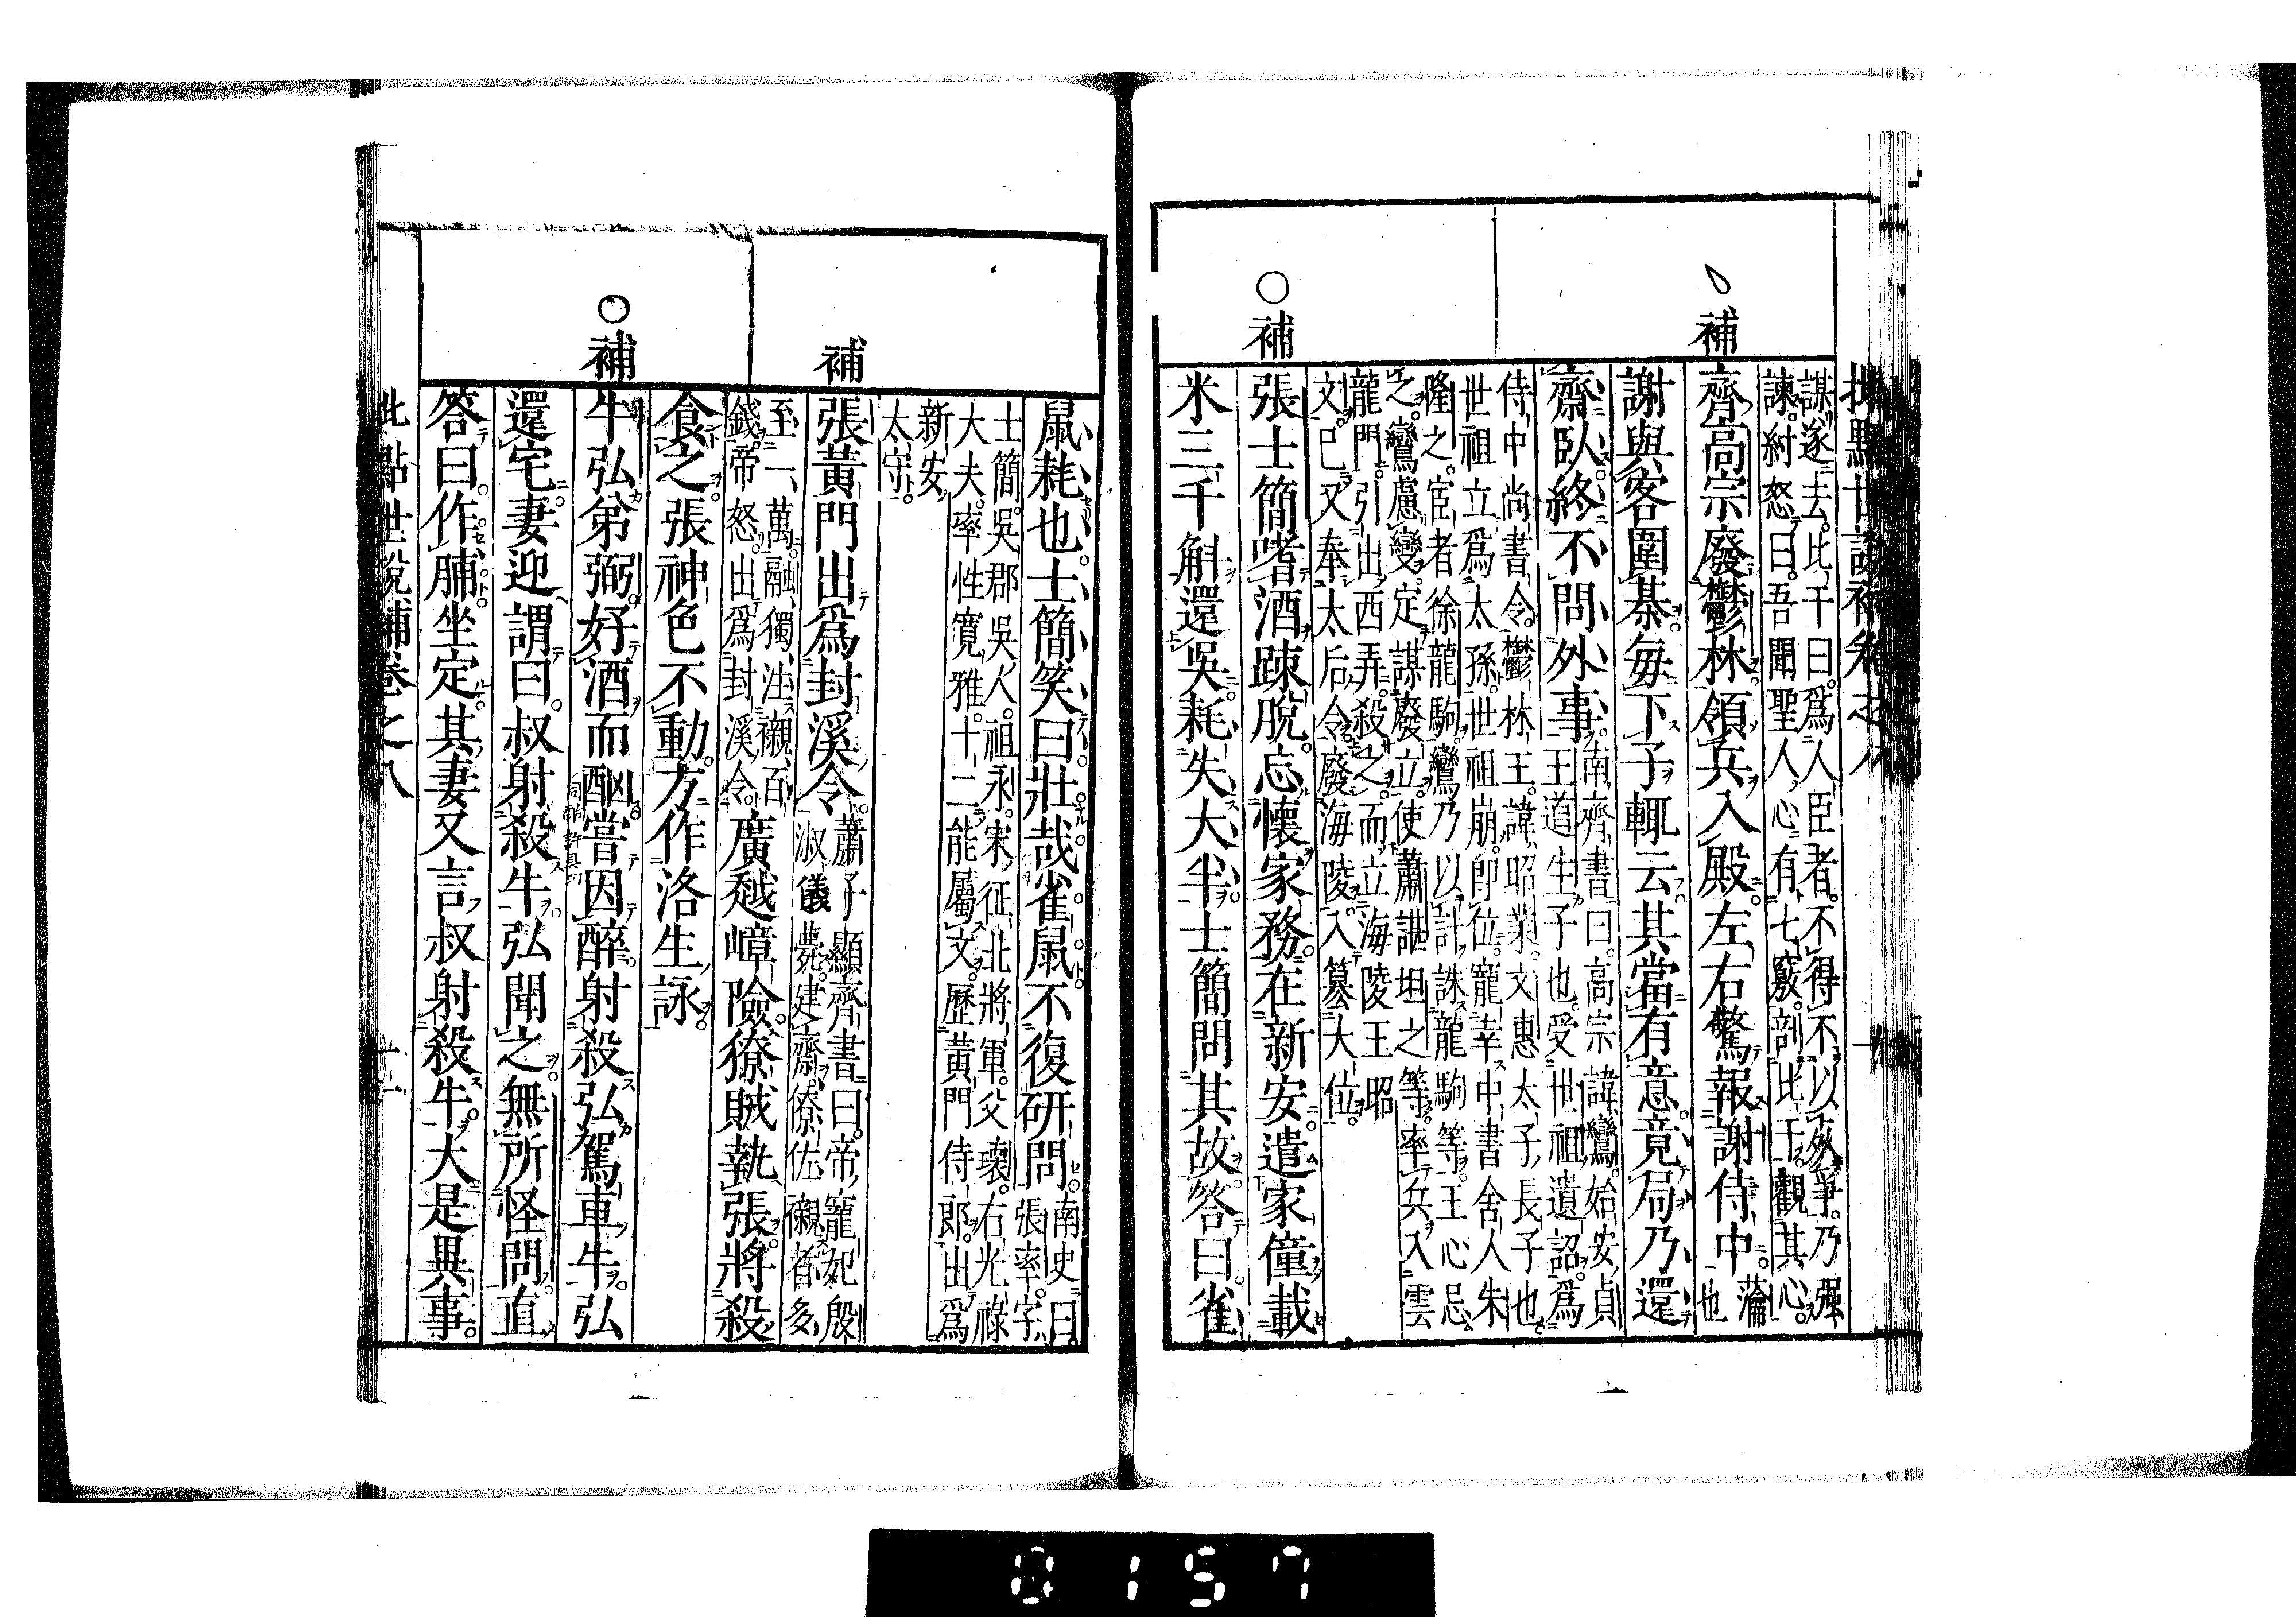 補
謀遂去比干曰爲人臣者不得不以死爭乃强
諫紂怒曰吾聞聖人心有七竅剖比干觀其心
齊高宗廢鬱林領兵入殿左右驚報謝侍中瀹也
謝與客圍棊毎下子輒云其當有意竟局乃還
齋臥終不問外事南齊書曰高宗諱鸞始安貞
王道生子也受世祖遺詔爲
侍中尚書令鬱林王諱昭業文惠太子長子也
世祖立爲太孫世祖崩卽位寵幸中書舍人朱
隆之宦者徐龍駒鸞乃以計誅龍駒等王心忌
之鸞慮變定謀廢立使蕭諶坦之等率兵入雲
龍門引出西弄殺之而立海陵王昭
文已又奉太后令廢海陵入簒大位
○補
張士簡嗜酒踈脫忘懷家務在新安遣家僮載
米三千斛還吳耗失大半士簡問其故答曰雀
鼠耗也士簡笑曰壯哉雀鼠不復研問南史曰
張率字
士簡吳郡吳人祖永宋征北將軍父瓌右光祿
大夫率性寛雅十二能屬文歷黃門侍郎出爲
新安
太守
補
張黃門出爲封溪令蕭子顯齊書曰帝寵妃殷
淑儀薨建齋僚佐襯者多
至一萬融獨注襯百
錢帝怒出爲封溪令廣越嶂險獠賊執張將殺
食之張神色不動方作洛生詠
○補
牛弘弟弼好酒而酗嘗因醉射殺弘駕車牛弘
還宅妻迎謂曰叔射殺牛弘聞之無所怪問直
答曰作脯坐定其妻又言叔射殺牛大是異事
批點世說補卷之八